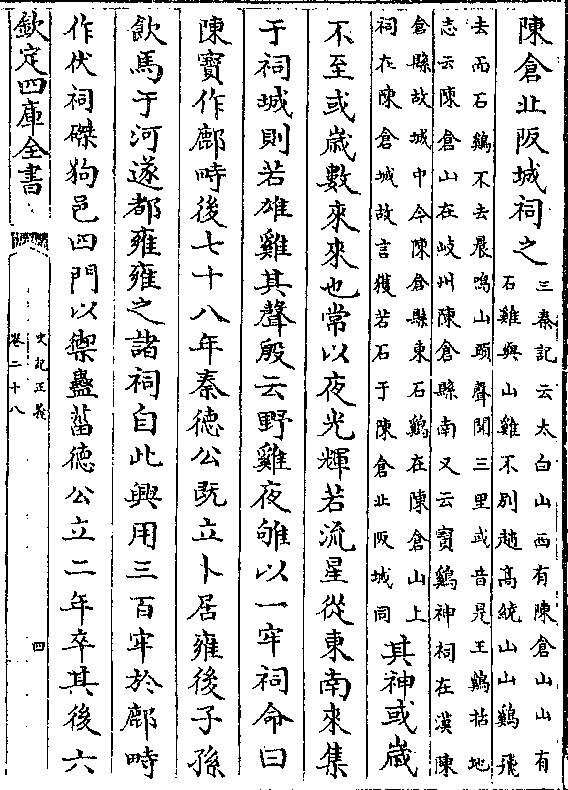 陳倉北阪城祠之三秦記云太白山西有陳倉山山有
石雞與山雞不别趙髙燒山山鷄飛
去而石鷄不去晨鳴山頭聲聞三里或言是玉鷄括地
志云陳倉山在岐州陳倉縣南又云寳鷄神祠在漢陳
倉縣故城中今陳倉縣東石鷄在陳倉山上
祠在陳倉城故言獲若石于陳倉北阪城同
其神或歲
不至或歲數來來也常以夜光輝若流星從東南來集
于祠城則若雄雞其聲殷云野雞夜雊以一牢祠命曰
陳寳作鄜畤後七十八年秦德公既立卜居雍後子孫
飲馬于河遂都雍雍之諸祠自此興用三百牢於鄜畤
作伏祠磔狗邑四門以禦蠱菑德公立二年卒其後六
欽定四庫全書
史記正義
卷二十八
四